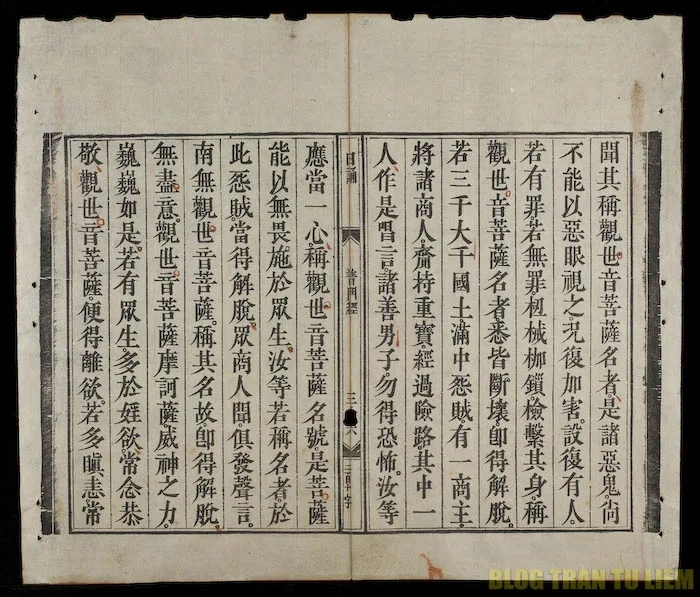 聞其稱觀世音菩薩名者是諸惡鬼尚
不能以惡眼視之況復加害設復有人
若有罪若無罪杻械枷鎖檢繫其身稱
觀世音菩薩名者悉皆斷壞卽得解脫
若三千大千國土滿中怨賊有一商主
將諸商人齎持重寶經過險路其中一
人作是唱言諸善男子勿得恐怖汝等
日誦
普門經
三
應當一心稱觀世音菩薩名號是菩薩
能以無畏施於眾生汝等若稱名者於
此怨賊當得解脫眾商人聞俱發聲言
南無觀世音菩薩稱其名故卽得解脫
無盡意觀世音菩薩摩訶薩威神之力
巍巍如是若有眾生多於婬欲常念恭
敬觀世音菩薩便得離欲若多瞋恚常
BLOG TRAN TU LIEM